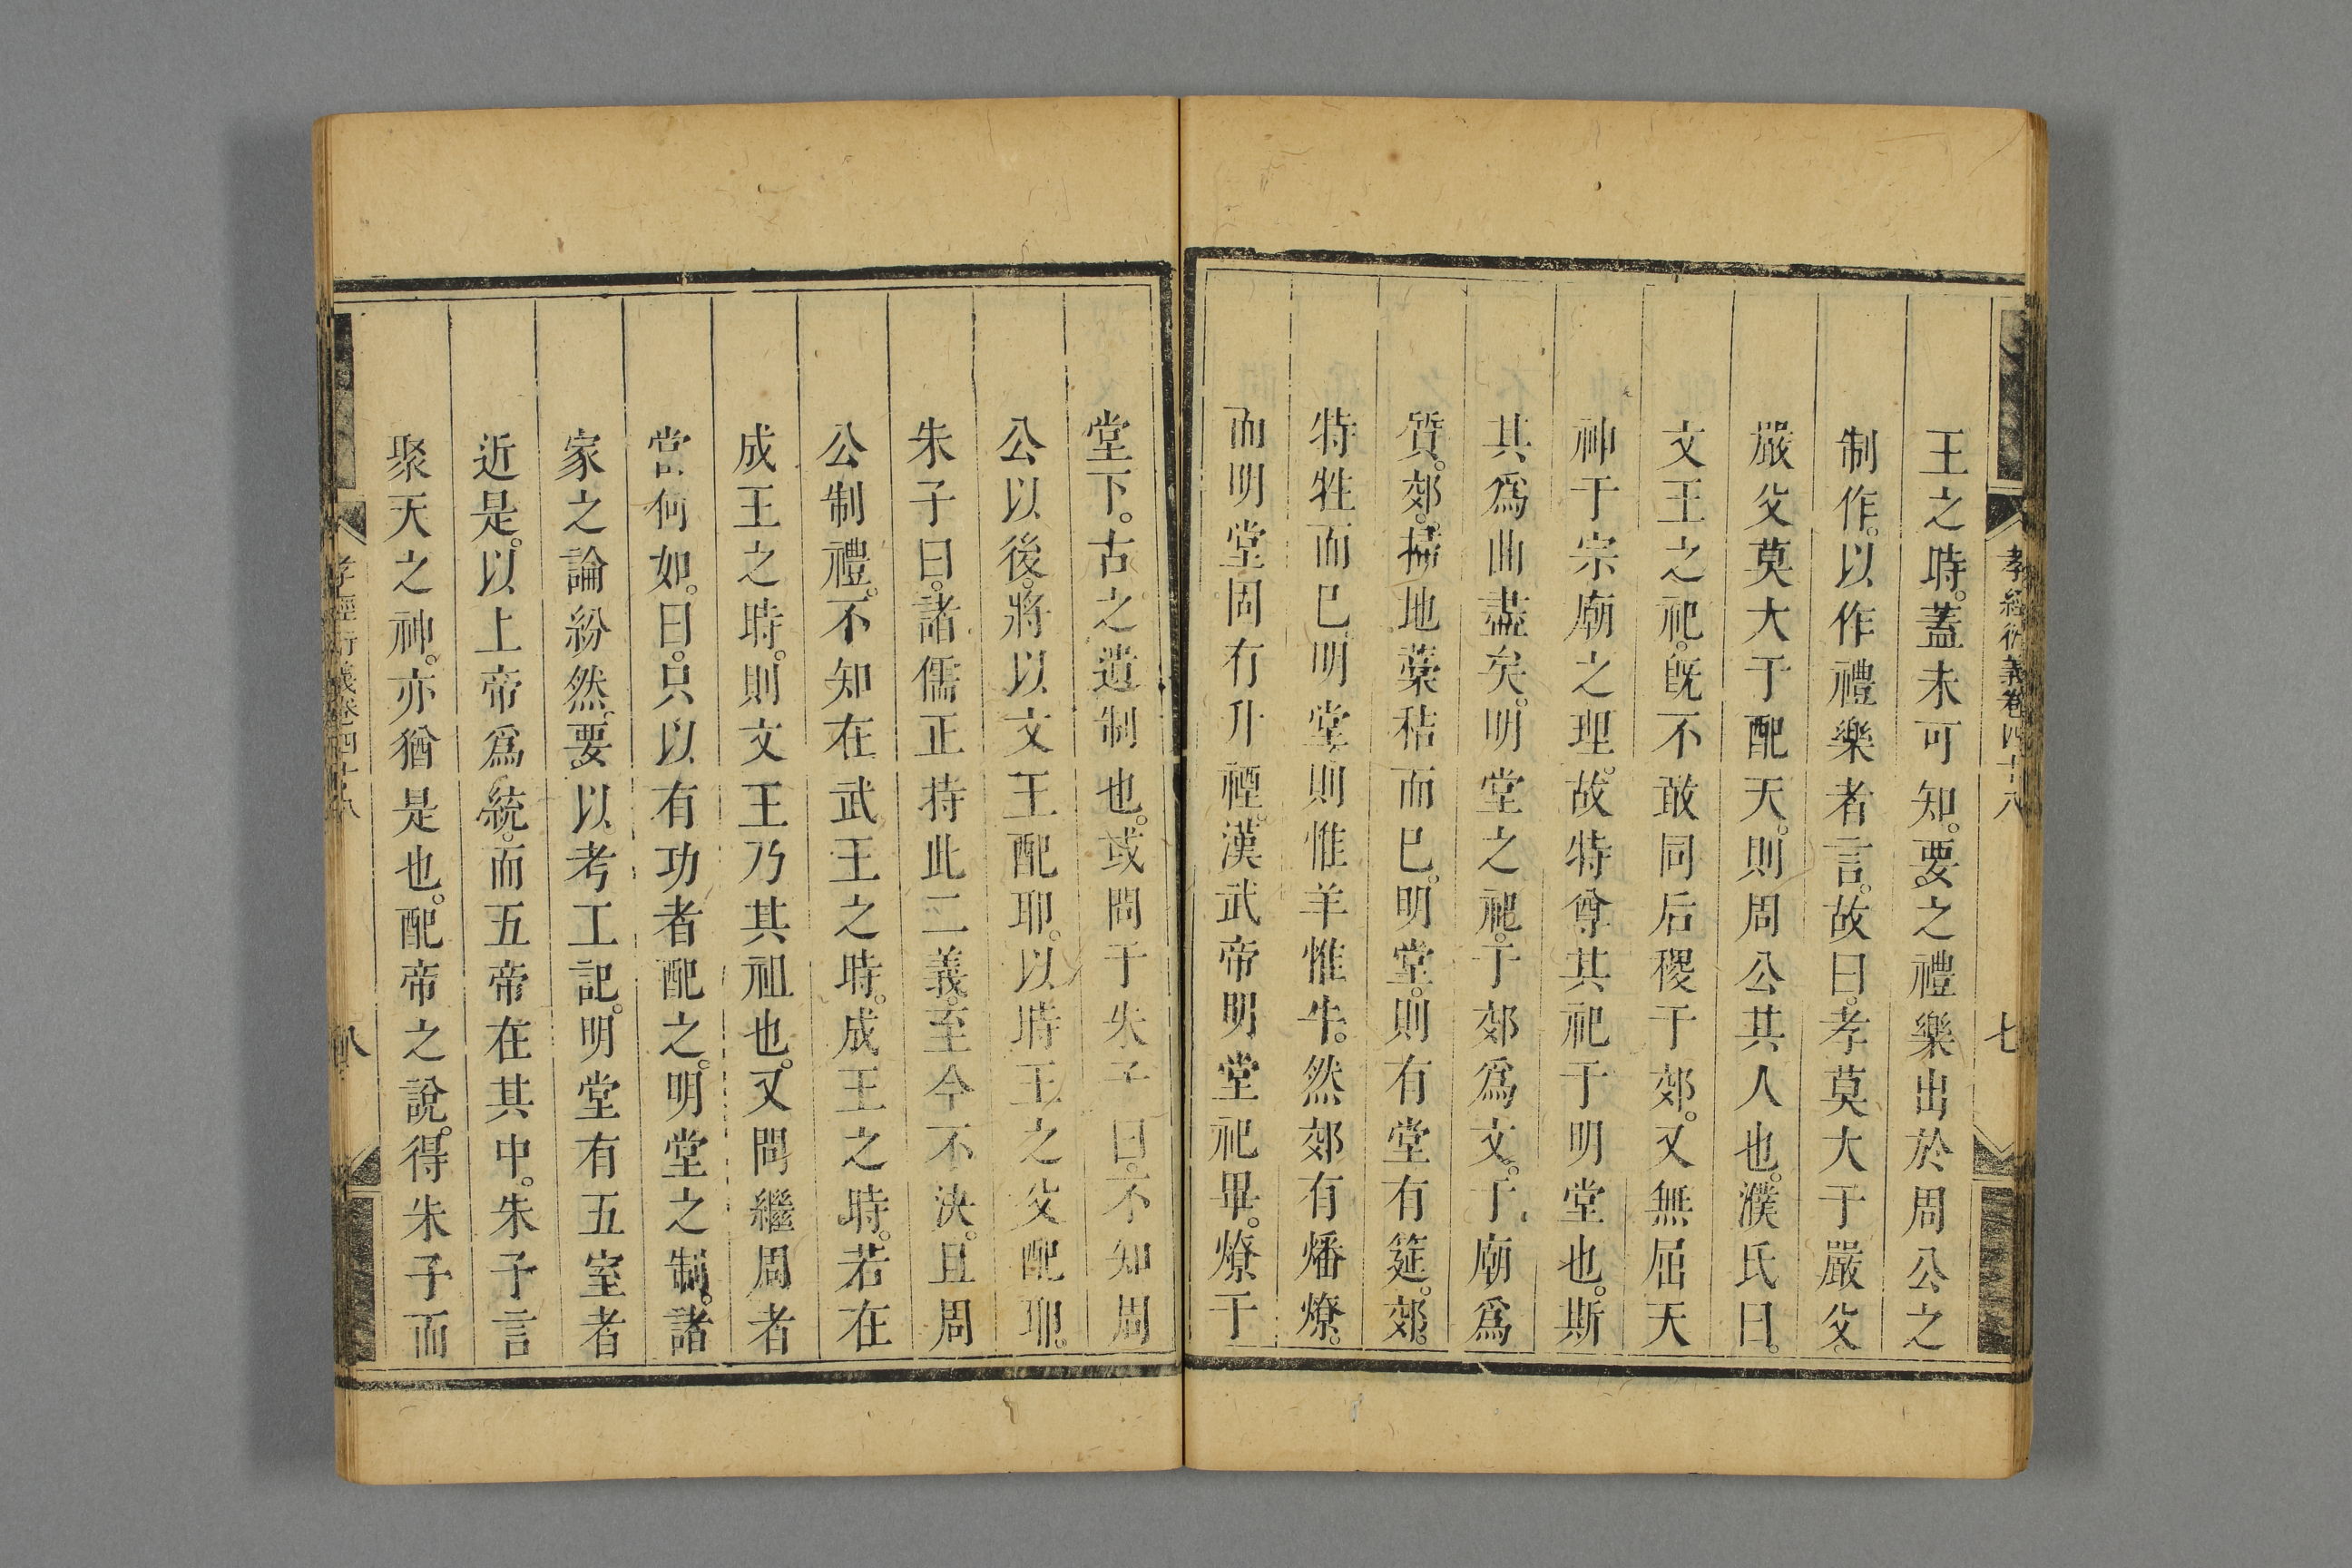 孝經衍義卷四十八
七
王之時。蓋未可知。要之禮樂出於周公之
制作。以作禮樂者言。故曰。孝莫大于嚴父。
嚴父莫大于配天。則周公其人也。濮氏曰。
文王之祀。旣不敢同后稷于郊。又無屈天
神于宗廟之理。故特尊其祀于明堂也。斯
其爲曲盡矣。明堂之禮。于郊爲文。于廟爲
質。郊。掃地藁秸而已。明堂。則有堂有筵。郊。
特牲而已。明堂則惟羊惟牛。然郊有燔燎。
而明堂固有升禋。漢武帝明堂祀畢。燎于
堂下。古之遺制也。或問于朱子曰。不知周
公以後。將以文王配耶。以時王之父配耶。
朱子曰。諸儒正持此二義。至今不決。且周
公制禮。不知在武王之時。成王之時。若在
成王之時。則文王乃其祖也。又問繼周者
當何如。曰。只以有功者配之。明堂之制。諸
家之論紛然。要以考工記。明堂有五室者
近是。以上帝爲統。而五帝在其中。朱子言
聚天之神。亦猶是也。配帝之說。得朱子而
孝經衍義卷四十八
八